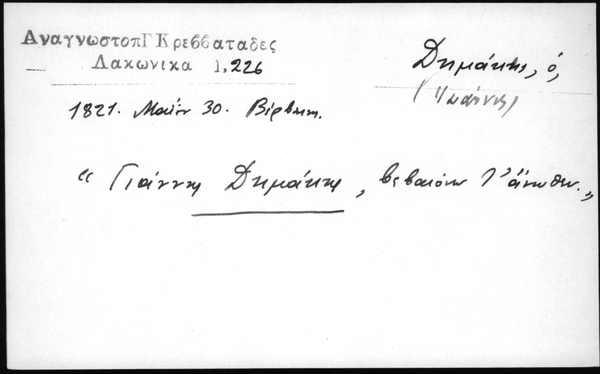 ΑναγνωστοπΓ Κρεββαταδες
Λακωνικα 1,226
Δημάκης, ὁ,
(Ἰωάννης)
1821. Μαΐου 30. Βέρβενα.
“ Γιάννης Δημάκης, βεβαιόνω τ’ ἄνωθεν. „